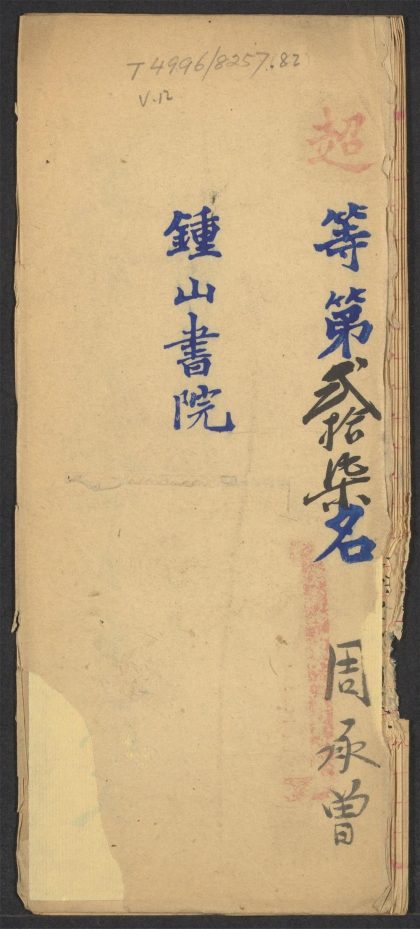 T 4996/8257.82
V.12
超等第貳拾柒名 周承曾
鍾山書院